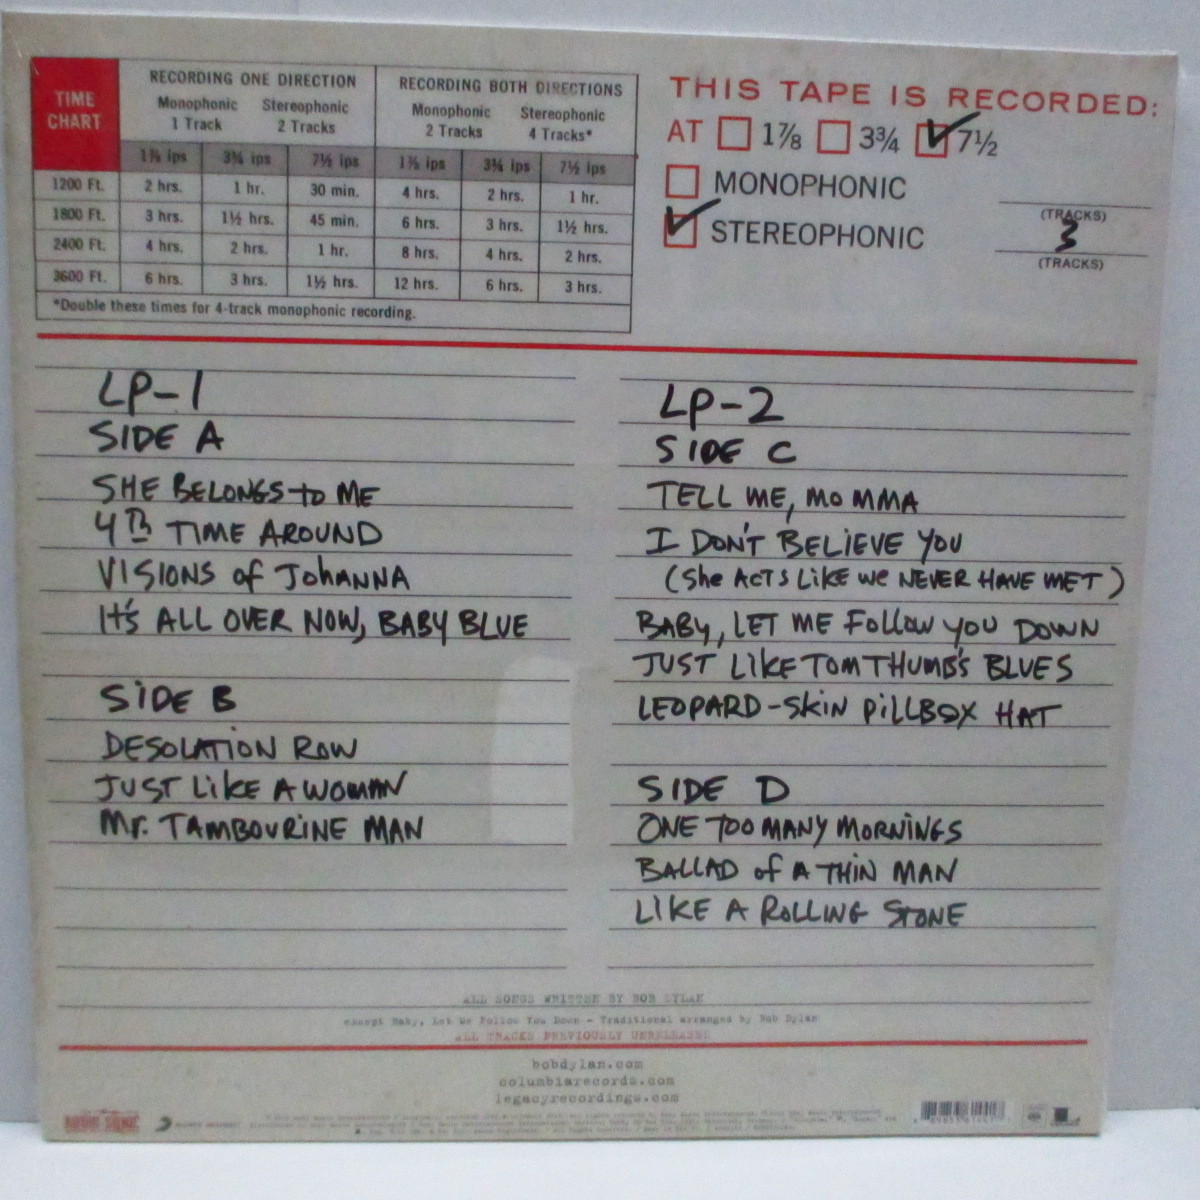 TIME CHART
RECORDING ONE DIRECTION
RECORDING BOTH DIRECTIONS
Monophonic 1 Track
Stereophonic 2 Tracks
Monophonic 2 Tracks
Stereophonic 4 Tracks*
1⅞ ips 3¾ ips 7½ ips 1⅞ ips 3¾ ips 7½ ips
1200 Ft. 2 hrs. 1 hr. 30 min. 4 hrs. 2 hrs. 1 hr.
1800 Ft. 3 hrs. 1½ hrs. 45 min. 6 hrs. 3 hrs. 1½ hrs.
2400 Ft. 4 hrs. 2 hrs. 1 hr. 8 hrs. 4 hrs. 2 hrs.
3600 Ft. 6 hrs. 3 hrs. 1½ hrs. 12 hrs. 6 hrs. 3 hrs.
*Double these times for 4-track monophonic recording.
THIS TAPE IS RECORDED:
AT 1⅞ 3¾ 7½
MONOPHONIC
(TRACKS)
STEREOPHONIC 3
(TRACKS)
LP-1
SIDE A
SHE BELONGS to ME
4TH TIME AROUND
VISIONS of JOHANNA
It's ALL OVER NOW, BABY BLUE
SIDE B
DESOLATION ROW
JUST LIKE A WOMAN
Mr. TAMBOURINE MAN
LP-2
SIDE C
TELL ME, MOMMA
I DON'T BELIEVE YOU
(She ACTS LIKE we NEVER HAVE MET)
BABY, LET ME Follow YOU DOWN
JUST LIKE TOM THUMB'S BLUES
LEOPARD-SKIN PILLBOX HAT
SIDE D
ONE TOO MANY MORNINGS
BALLAD of A THIN MAN
LIKE A ROLLING STONE
ALL SONGS WRITTEN BY BOB DYLAN
except Baby, Let Me Follow You Down - Traditional arranged by Bob Dylan
ALL TRACKS PREVIOUSLY UNRELEASED
bobdylan.com
columbiarecords.com
legacyrecordings.com